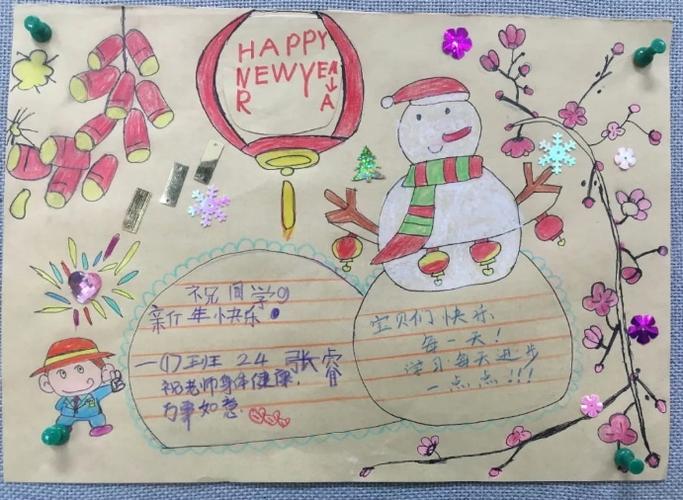 HAPPY
NEWYEA
R A
祝同学
新年快乐
一(1)班 24 张睿
祝老师身体健康,
万事如意
宝贝们快乐
每一天!
学习每天进步
一点点!!!